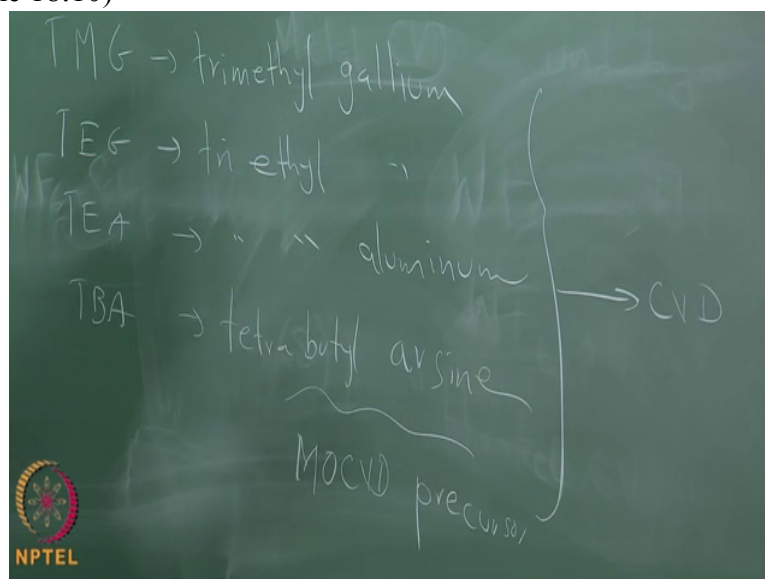 TMG → trimethyl gallium
TEG → tri ethyl "
TEA → " " aluminum
→ CVD
TBA → tetrabutyl arsine
MOCVD precursor
NPTEL